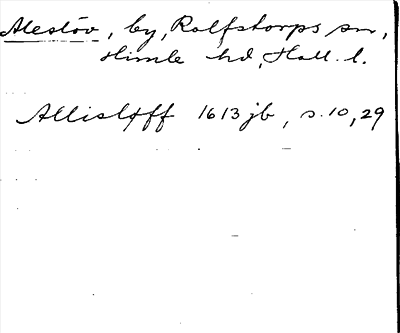 Alesłöv, by, Rolfstorps sn,
Himle hd, Hall. l.
Allisløff 1613 jb, s. 10, 29